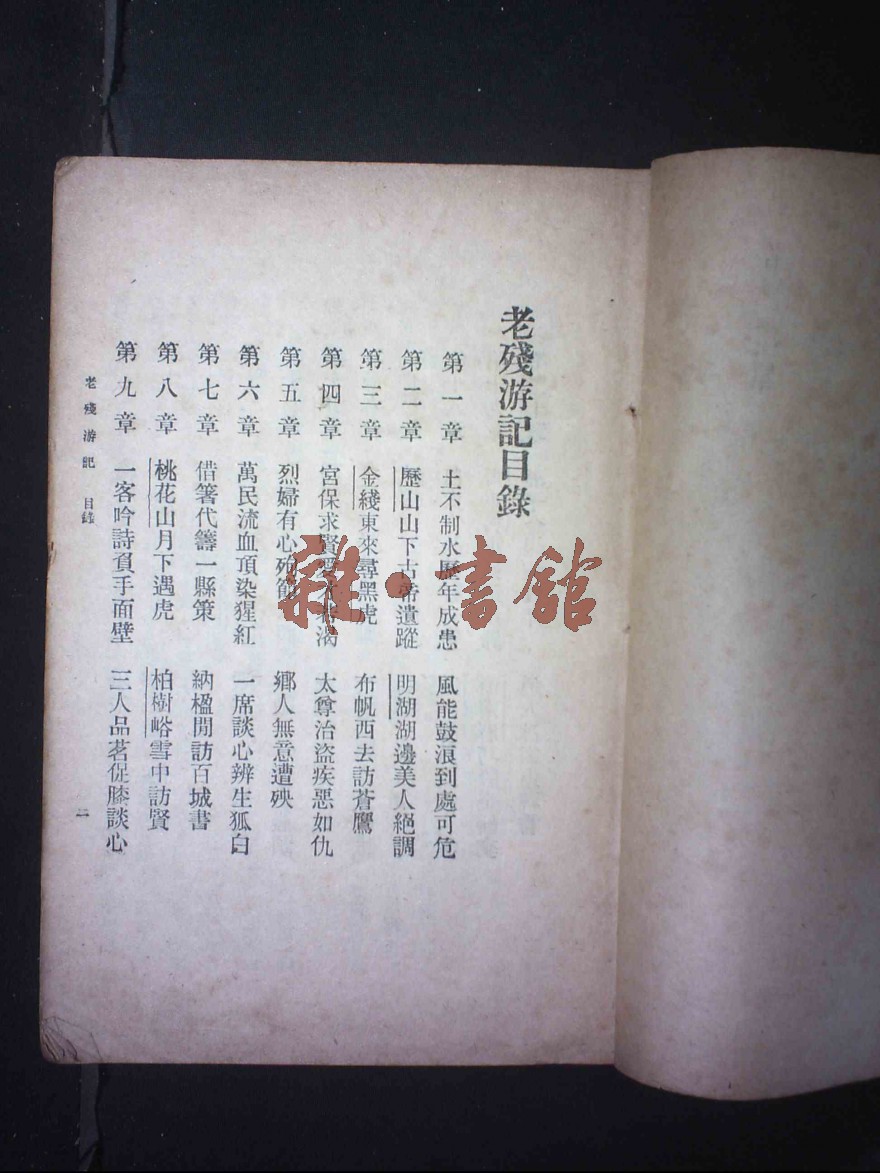 老殘游記目錄
第一章 土不制水歷年成患 風能鼓浪到處可危
第二章 歷山山下古帝遺蹤 明湖湖邊美人絕調
第三章 金綫東來尋黑虎 布帆西去訪蒼鷹
第四章 宮保求賢 渴 太尊治盜疾惡如仇
第五章 烈婦有心殉節 鄉人無意遭殃
第六章 萬民流血頂染猩紅 一席談心辨生狐白
第七章 借箸代籌一縣策 納楹閒訪百城書
第八章 桃花山月下遇虎 柏樹峪雪中訪賢
第九章 一客吟詩負手面壁 三人品茗促膝談心
老殘游記 目錄
二
雜·書舘